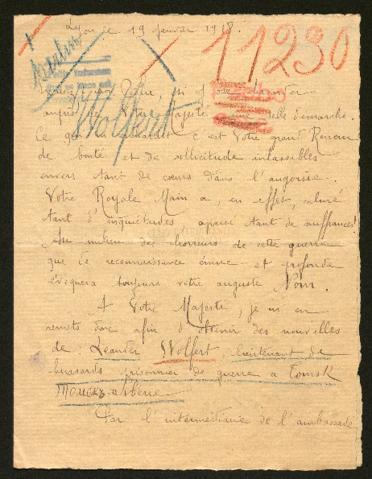 Lyon le 19 février 1918.
11230
Wolfert
auprès de Votre Majesté une telle démarche.
Ce qui c'est Votre grand Renom
de bonté et de sollicitude inlassables
envers tant de cœurs dans l'angoisse.
Votre Royale Main a, en effet, calmé
tant d'inquiétudes apaisé tant de souffrances!
Au milieu des horreurs de cette guerre
que de reconnaissance émue et profonde
évoquera toujours votre auguste Nom.
A Votre Majesté, je m'en
remets donc afin d'obtenir des nouvelles
de Leander Wolfert, lieutenant de
hussards prisonnier de guerre à Tomsk
Sibérie
Par l'intermédiaire de l'ambassade